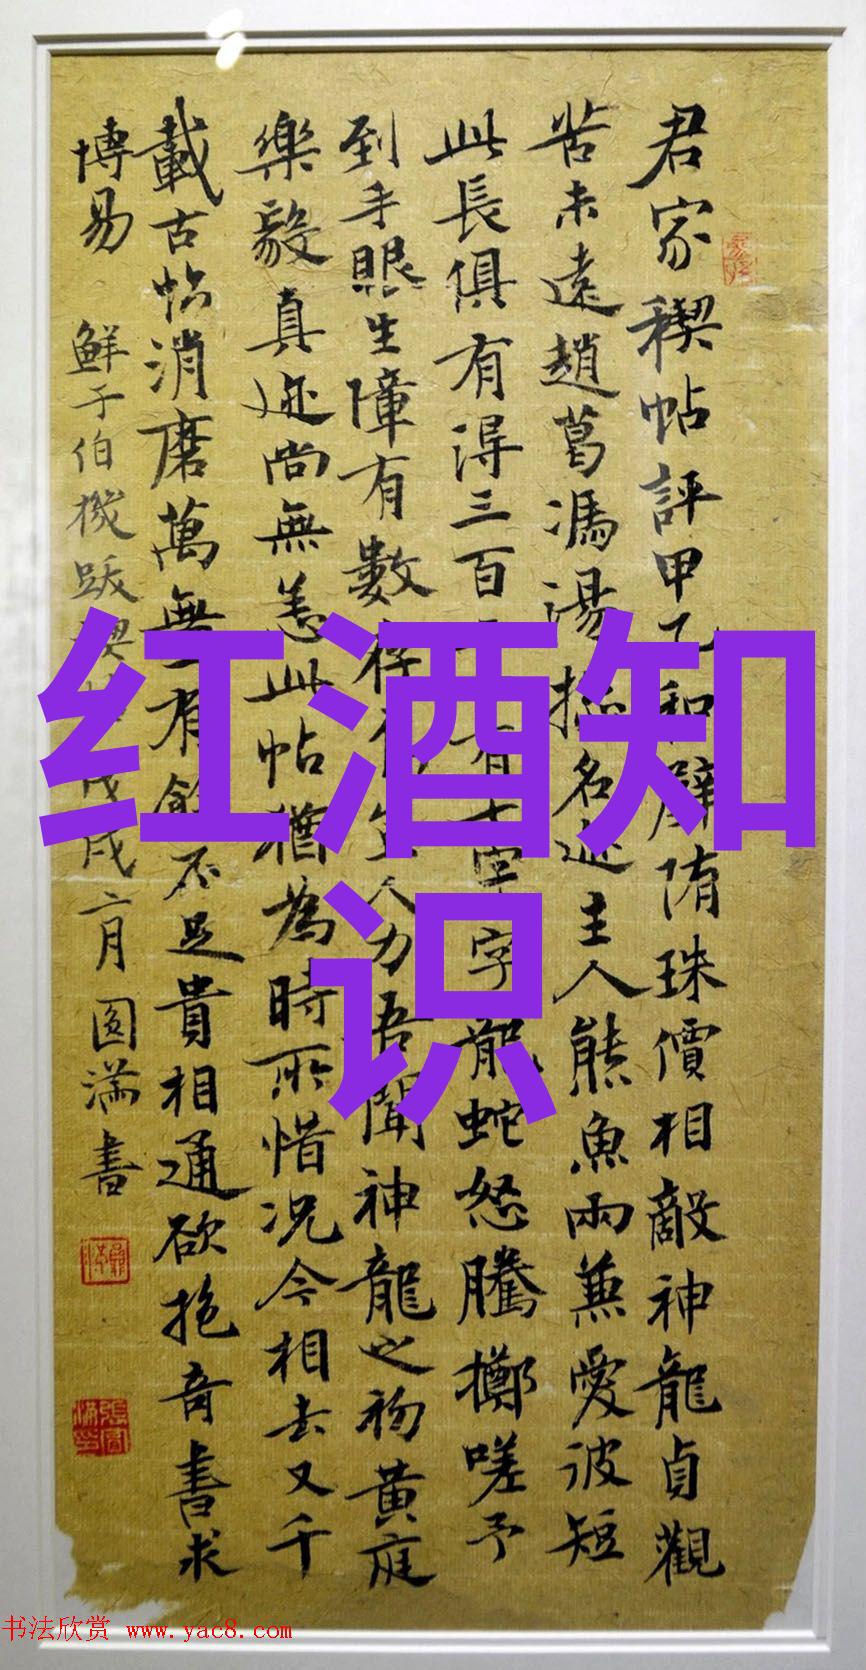 君家稧帖評甲乙和璧隋珠價相敵神龍貞觀
苦未遠趙葛馮湯揾名迹主人熊魚兩兼愛彼短
此長俱有得三百二有十字字龍蛇怒騰擲嗟予
到手眼生障有數存人力吾聞神龍之初黃庭
樂毅真迹尚無恙此帖猶為時所惜況今相去又千
載古帖消磨萬無一有餘不足貴相通欲抱奇書求
博易
鮮于伯機跋稧帖戊戌六月圓滿書
红酒知
识
书法欣赏 www.yac8.com